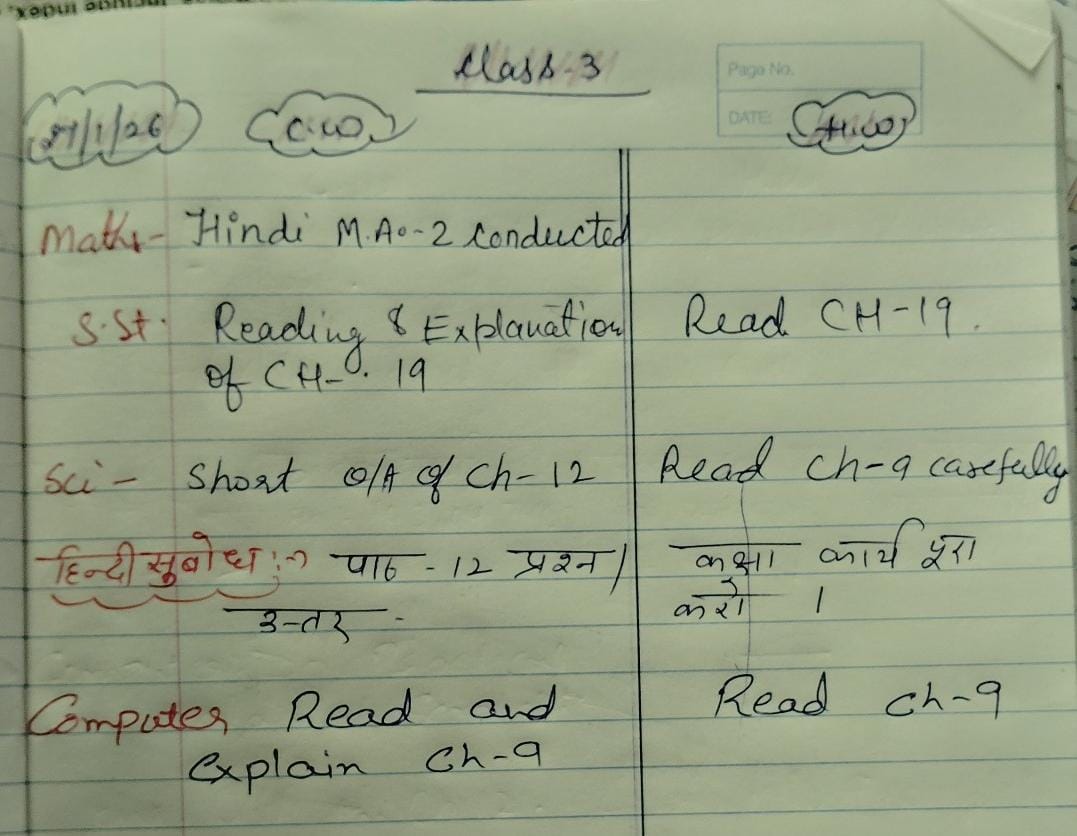 Class-3
Page No.
DATE:
27/1/26 C.W H.W
Maths- Hindi M.A.-2 conducted
S.St. Reading & Explanation Read CH-19.
of CH-. 19
Sci- Short Q/A of Ch-12 Read Ch-9 carefully
हिन्दी सुबोध :-> पाठ - 12 प्रश्न/ कक्षा कार्य पूरा
उत्तर - करो ।
Computer Read and Read Ch-9
explain Ch-9